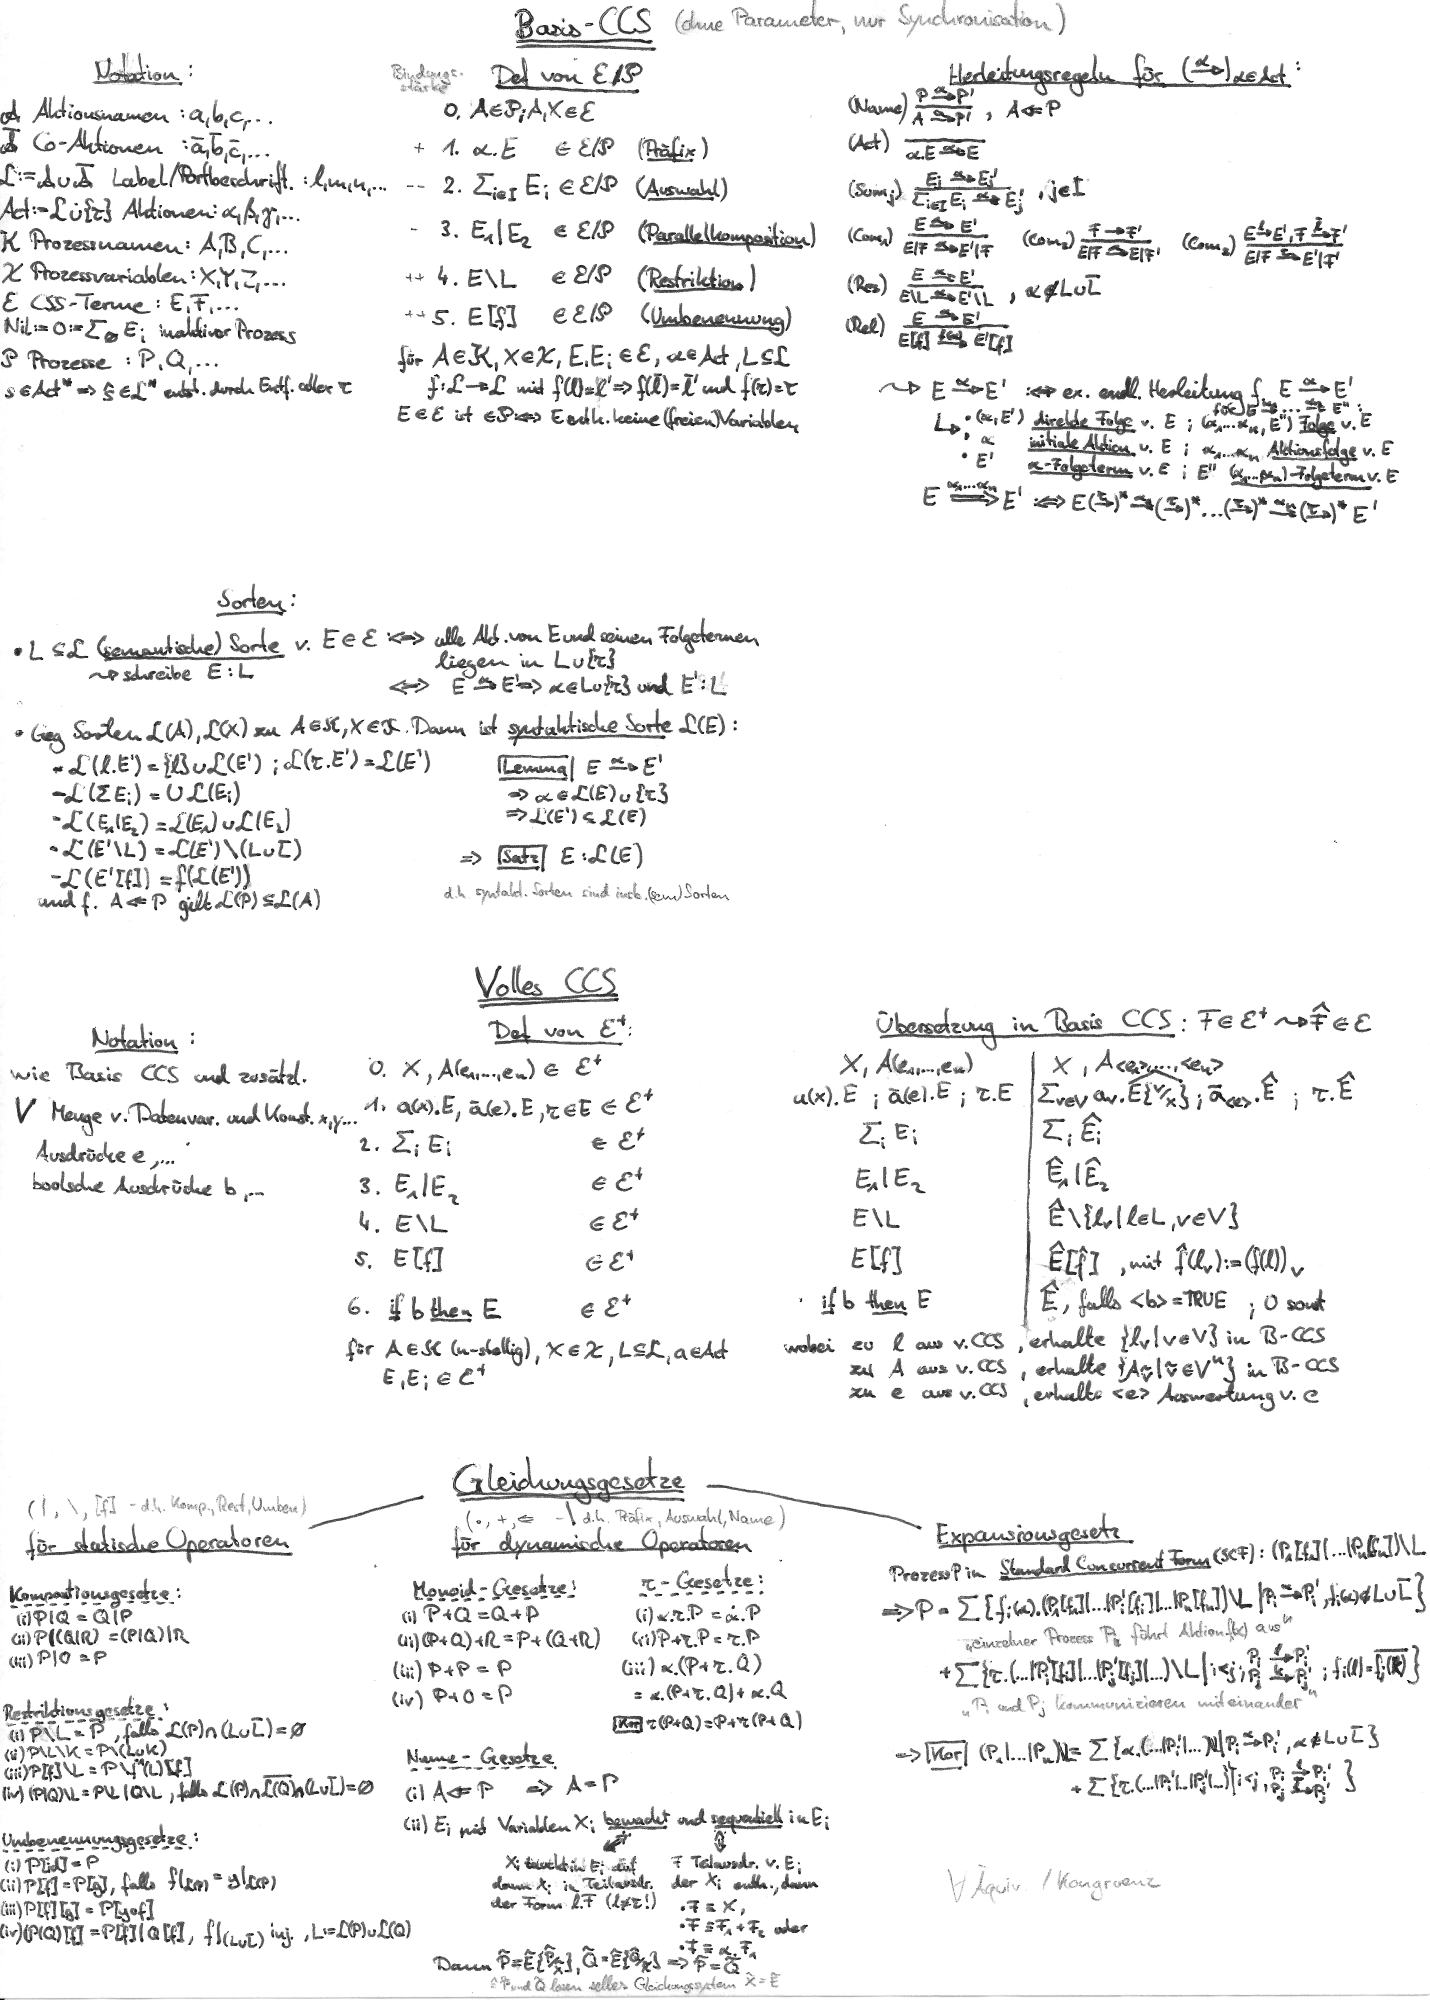 Basis-CCS (ohne Parameter, nur Synchronisation)
Notation:
𝒜 Aktionsnamen : a,b,c,...
𝒜̄ Co-Aktionen : ā,b̄,c̄,...
ℒ:=𝒜∪𝒜̄ Label/Portbeschrift. : l,m,n,...
Act:=ℒ∪̇{τ} Aktionen: α,β,γ,...
𝒦 Prozessnamen: A,B,C,...
𝒳 Prozessvariablen: X,Y,Z,...
ℰ CSS-Terme : E,F,...
Nil:=0:=Σ_∅ E_i inaktiver Prozess
𝒫 Prozesse : P,Q,...
s∈Act* ⇒ ŝ∈ℒ* entst. durch Entf. aller τ
Bindungs-stärke
Def von ℰ/𝒫
0. A∈𝒫; A,X∈ℰ
+ 1. α.E ∈ ℰ/𝒫 (Präfix)
-- 2. Σ_{i∈I} E_i ∈ ℰ/𝒫 (Auswahl)
- 3. E₁|E₂ ∈ ℰ/𝒫 (Parallelkomposition)
++ 4. E\L ∈ ℰ/𝒫 (Restriktion)
++ 5. E[f] ∈ ℰ/𝒫 (Umbenennung)
für A∈𝒦, X∈𝒳, E,E_i∈ℰ, α∈Act, L⊆ℒ
f:ℒ→ℒ mit f(l)=l' ⇒ f(l̄)=l̄' und f(τ)=τ
E∈ℰ ist ∈𝒫 :⇔ E enth. keine (freien) Variablen
Herleitungsregeln für (→^α)_{α∈Act}:
(Name) P →^α P' / A →^α P' , A⇐P
(Act) / α.E →^α E
(Sum_j) E_j →^α E_j' / Σ_{i∈I} E_i →^α E_j' , j∈I
(Com₁) E →^α E' / E|F →^α E'|F (Com₂) F → F' / E|F →^α E|F' (Com₃) E →^l E', F →^l̄ F' / E|F →^τ E'|F'
(Res) E →^α E' / E\L →^α E'\L , α∉L∪L̄
(Rel) E →^α E' / E[f] →^f(α) E'[f]
⇝ E →^α E' :⇔ ex. endl. Herleitung f. E →^α E'
für E →^α₁ ... →^αₙ E'':
• (α,E') direkte Folge v. E ; (α₁...αₙ,E'') Folge v. E
• α initiale Aktion v. E ; α₁...αₙ Aktionsfolge v. E
• E' α-Folgeterm v. E ; E'' (α₁...αₙ)-Folgeterm v. E
E ⇒^{α₁...αₙ} E' :⇔ E(→^τ)* →^α₁ (→^τ)* ... (→^τ)* →^αₙ (→^τ)* E'
Sorten:
• L⊆ℒ (semantische) Sorte v. E∈ℰ :⇔ alle Akt. von E und seinen Folgetermen
liegen in L∪{τ}
⇝ schreibe E:L
⇔ E →^α E' ⇒ α∈L∪{τ} und E':L
• Geg Sorten ℒ(A), ℒ(X) zu A∈𝒦, X∈𝒳. Dann ist syntaktische Sorte ℒ(E):
- ℒ(l.E') = {l}∪ℒ(E') ; ℒ(τ.E') = ℒ(E')
- ℒ(ΣE_i) = ∪ℒ(E_i)
- ℒ(E₁|E₂) = ℒ(E₁)∪ℒ(E₂)
- ℒ(E'\L) = ℒ(E')\(L∪L̄)
- ℒ(E'[f]) = f(ℒ(E'))
und f. A⇐P gilt ℒ(P)⊆ℒ(A)
Lemma E →^α E'
⇒ α∈ℒ(E)∪{τ}
⇒ ℒ(E')⊆ℒ(E)
⇒ Satz E:ℒ(E)
d.h. syntakt. Sorten sind insb. (sem) Sorten
Volles CCS
Notation:
wie Basis CCS und zusätzl.
V Menge v. Datenvar. und Konst. x,y...
Ausdrücke e,...
boolsche Ausdrücke b,...
Def von ℰ⁺:
0. X, A(e₁,...,eₙ) ∈ ℰ⁺
1. a(x).E, ā(e).E, τ.E ∈ ℰ⁺
2. Σ_i E_i ∈ ℰ⁺
3. E₁|E₂ ∈ ℰ⁺
4. E\L ∈ ℰ⁺
5. E[f] ∈ ℰ⁺
6. if b then E ∈ ℰ⁺
für A∈𝒦 (n-stellig), X∈𝒳, L⊆ℒ, a∈Act
E,E_i ∈ ℰ⁺
Übersetzung in Basis CCS: F∈ℰ⁺ ⇝ F̂∈ℰ
X, A(e₁,...,eₙ) | X, A<e₁>,...,<eₙ>
a(x).E ; ā(e).E ; τ.E | Σ_{v∈V} a_v.Ê{v/x} ; ā_<e>.Ê ; τ.Ê
Σ_i E_i | Σ_i Ê_i
E₁|E₂ | Ê₁|Ê₂
E\L | Ê\{l_v | l∈L, v∈V}
E[f] | Ê[f̂] , mit f̂(l_v):=(f(l))_v
if b then E | Ê, falls <b>=TRUE ; 0 sonst
wobei zu l aus v.CCS, erhalte {l_v|v∈V} in B-CCS
zu A aus v.CCS, erhalte {A_ṽ|ṽ∈Vⁿ} in B-CCS
zu e aus v.CCS, erhalte <e> Auswertung v. e
Gleichungsgesetze
(|, \, [f] - d.h. Komp., Rest, Umben)
für statische Operatoren
Kompositionsgesetze:
(i) P|Q = Q|P
(ii) P|(Q|R) = (P|Q)|R
(iii) P|0 = P
Restriktionsgesetze:
(i) P\L = P , falls ℒ(P)∩(L∪L̄)=∅
(ii) P\L\K = P\(L∪K)
(iii) P[f]\L = P\f⁻¹(L)[f]
(iv) (P|Q)\L = P\L | Q\L , falls ℒ(P)∩ℒ(Q)̄∩(L∪L̄)=∅
Umbenennungsgesetze:
(i) P[id] = P
(ii) P[f] = P[g], falls f|ℒ(P) = g|ℒ(P)
(iii) P[f][g] = P[g∘f]
(iv) (P|Q)[f] = P[f]|Q[f], f|(L∪L̄) inj., L:=ℒ(P)∪ℒ(Q)
(∘, +, ⇐ - d.h. Präfix, Auswahl, Name)
für dynamische Operatoren
Monoid-Gesetze:
(i) P+Q = Q+P
(ii) (P+Q)+R = P+(Q+R)
(iii) P+P = P
(iv) P+0 = P
τ-Gesetze:
(i) α.τ.P = α.P
(ii) P+τ.P = τ.P
(iii) α.(P+τ.Q)
= α.(P+τ.Q)+α.Q
Kor τ(P+Q) = P+τ(P+Q)
Name-Gesetze
(i) A⇐P ⇒ A=P
(ii) E_i mit Variablen X_i bewacht und sequentiell in E_i
X_i taucht in E_i auf
dann X_i in Teilausdr.
der Form l.F (l≠τ!)
F Teilausdr. v. E_i
der X_i enth., dann
• F ≡ X,
• F ≡ F₁+F₂ oder
• F ≡ α.F₁
Dann P̃=Ẽ{P̃/X̃}, Q̃=Ẽ{Q̃/X̃} ⇒ P̃=Q̃
≙ P̃ und Q̃ lösen selbes Gleichungssystem X̃=Ẽ
Expansionsgesetz
Prozess P in Standard Concurrent Form (SCF): (P₁[f₁]|...|Pₙ[fₙ])\L
⇒ P = Σ{f_i(α).(P₁[f₁]|...|P_i'[f_i]|...|Pₙ[fₙ])\L | P_i →^α P_i', f_i(α)∉L∪L̄}
"einzelner Prozess P_i führt Aktion f(α) aus"
+ Σ{τ.(...|P_i'[f_i]|...|P_j'[f_j]|...)\L | i<j, P_i →^l P_i', P_j →^k P_j' ; f_i(l)=f_j(k)̄}
"P_i und P_j kommunizieren miteinander"
⇒ Kor (P₁|...|Pₙ)\L = Σ{α.(...|P_i'|...)\L | P_i →^α P_i', α∉L∪L̄}
+ Σ{τ.(...|P_i'|...|P_j'|...) | i<j, P_i →^l P_i', P_j →^l̄ P_j'}
∀ Äquiv. / Kongruenz